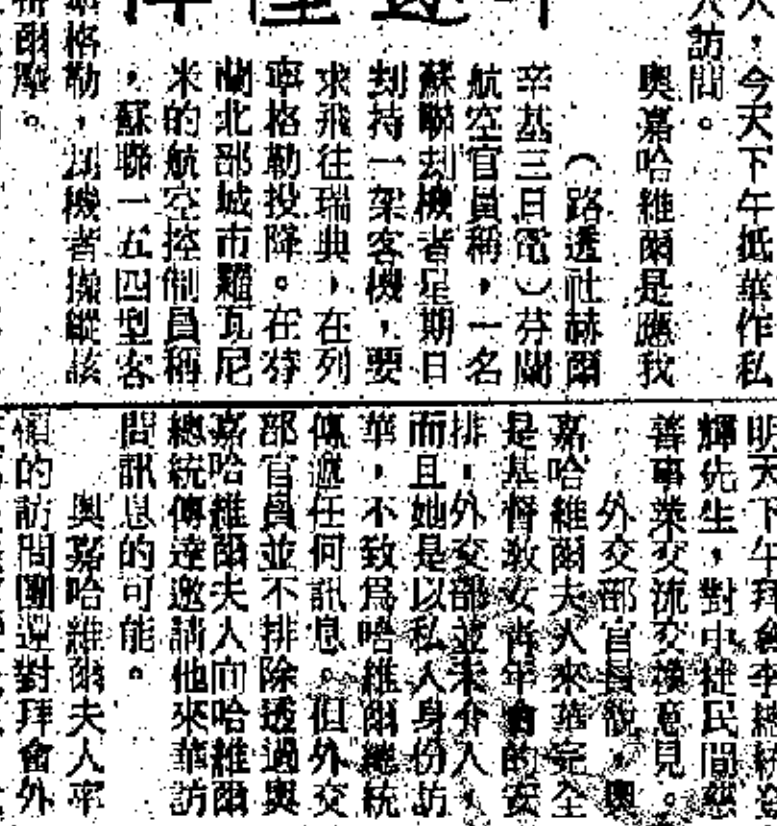 人,今天下午抵華作私
人訪問。
奧嘉哈維爾是應我
(路透社赫爾
辛基三日電)芬蘭
航空官員稱,一名
蘇聯刦機者星期日
刦持一架客機,要
求飛往瑞典,在列
寧格勒投降。在芬
蘭北部城市羅瓦尼
米的航空控制員稱
,蘇聯一五四型客
格勒,刦機者操縱該
爾摩。
明天下午拜會李總統登
輝先生,對中捷民間慈
善事業交流交換意見。
外交部官員說,奧
嘉哈維爾夫人來華完全
是基督教女青年會的安
排,外交部並未介入,
而且她是以私人身份訪
華,不致爲哈維爾總統
傳遞任何訊息。但外交
部官員並不排除透過奧
嘉哈維爾夫人向哈維爾
總統傳達邀請他來華訪
問訊息的可能。
奧嘉哈維爾夫人率
領的訪問團還對拜會外